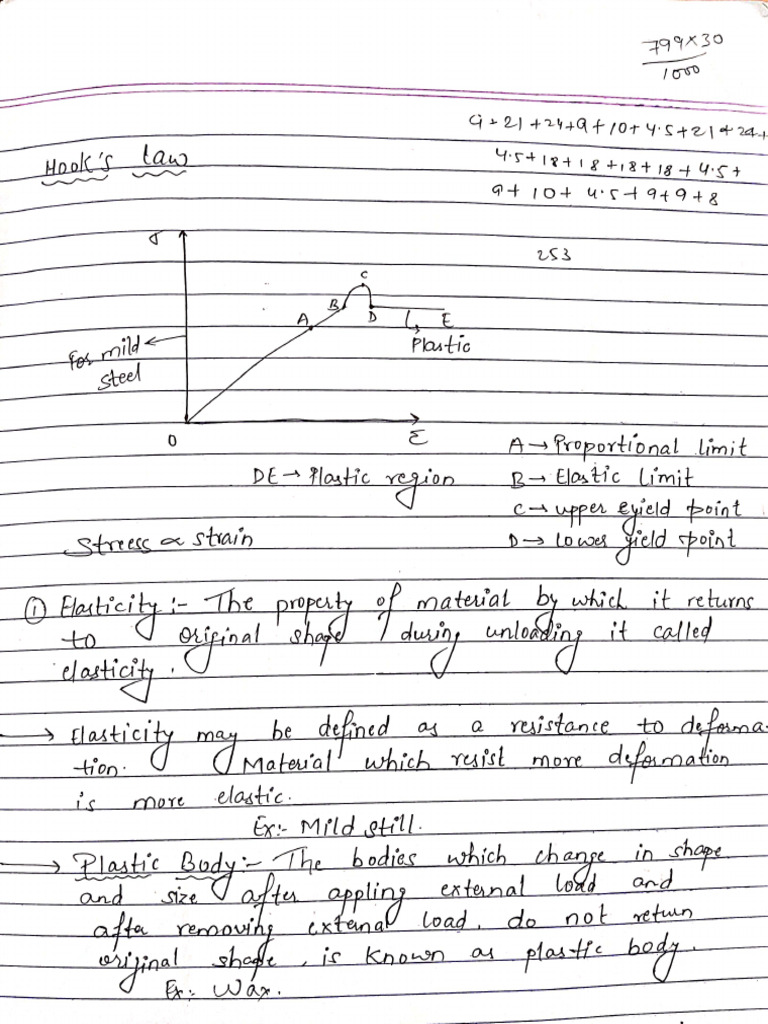 799×30
1000
9+21+24+9+10+4.5+21+24+
Hook's law
4.5+18+18+18+18+4.5+
9+10+4.5+9+9+8
σ
253
C
B
A D E
Plastic
for mild
steel
O ε
A → Proportional limit
DE → Plastic region B → Elastic Limit
C → upper eyield point
Streess ∝ strain D → lower yield point
① Elasticity :- The property of material by which it returns
to original shape during unloading it called
elasticity.
→ Elasticity may be defined as a resistance to deforma-
tion. Material which resist more deformation
is more elastic.
Ex:- Mild still.
→ Plastic Body:- The bodies which change in shape
and size after appling external load and
after removing external load, do not return
original shape, is known as plastic body.
Ex:- Wax.